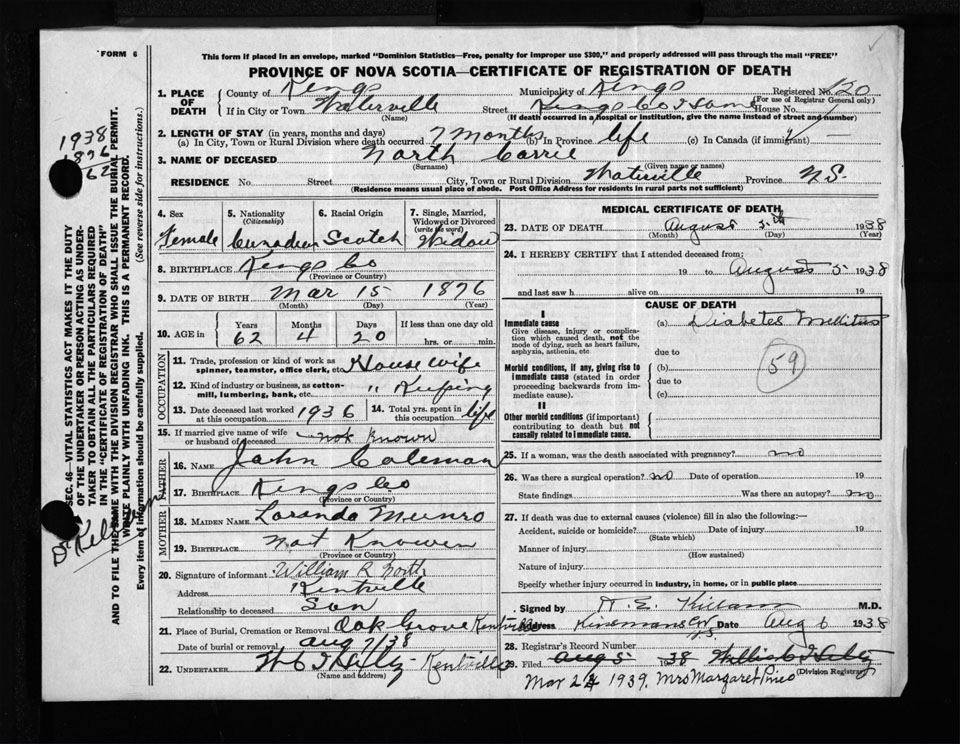 FORM 6
This form if placed in an envelope, marked "Dominion Statistics—Free, penalty for improper use $300," and properly addressed will pass through the mail "FREE"
PROVINCE OF NOVA SCOTIA—CERTIFICATE OF REGISTRATION OF DEATH
1. PLACE OF DEATH
County of Kings Municipality of Kings Registered No. 120
(For use of Registrar General only)
If in City or Town Waterville Street Kings Co House No.
(Name) (If death occurred in a hospital or institution, give the name instead of street and number)
2. LENGTH OF STAY (in years, months and days)
(a) In City, Town or Rural Division where death occurred 7 months (b) In Province life (c) In Canada (if immigrant) —
3. NAME OF DECEASED North Carrie
(Surname) (Given name or names)
RESIDENCE No. Street City, Town or Rural Division Waterville Province N.S.
(Residence means usual place of abode. Post Office Address for residents in rural parts not sufficient)
1938
1876
62
SEC. 46—VITAL STATISTICS ACT MAKES IT THE DUTY
OF THE UNDERTAKER OR PERSON ACTING AS UNDER-
TAKER TO OBTAIN ALL THE PARTICULARS REQUIRED
IN THE "CERTIFICATE OF REGISTRATION OF DEATH"
AND TO FILE THE SAME WITH THE DIVISION REGISTRAR WHO SHALL ISSUE THE BURIAL PERMIT.
WRITE PLAINLY WITH UNFADING INK. THIS IS A PERMANENT RECORD.
Every item of information should be carefully supplied. (See reverse side for instructions.)
4. Sex 5. Nationality (Citizenship) 6. Racial Origin 7. Single, Married, Widowed or Divorced (write the word)
Female Canadian Scotch Widow
8. BIRTHPLACE Kings Co
(Province or Country)
9. DATE OF BIRTH Mar 15 1876
(Month) (Day) (Year)
10. AGE in Years Months Days If less than one day old
62 4 20 hrs. or min.
OCCUPATION
11. Trade, profession or kind of work as spinner, teamster, office clerk, etc. House wife
12. Kind of industry or business, as cotton-mill, lumbering, bank, etc. " Keeping
13. Date deceased last worked at this occupation 1936 14. Total yrs. spent in this occupation life
15. If married give name of wife or husband of deceased not known
FATHER
16. NAME John Coleman
17. BIRTHPLACE Kings Co
(Province or Country)
MOTHER
18. MAIDEN NAME Loranda Munro
19. BIRTHPLACE Not Knowen
(Province or Country)
20. Signature of informant William R North
Address Kentville
Relationship to deceased Son
21. Place of Burial, Cremation or Removal Oak Grove Kentville
Date of burial or removal Aug 7/38
22. UNDERTAKER Kentville
(Name and address)
MEDICAL CERTIFICATE OF DEATH
23. DATE OF DEATH August 5th 1938
(Month) (Day) (Year)
24. I HEREBY CERTIFY that I attended deceased from:
19 to August 5 1938
and last saw h alive on 19
CAUSE OF DEATH
I
Immediate cause (a) Diabetes Mellitus
Give disease, injury or complication which caused death, not the mode of dying, such as heart failure, asphyxia, asthenia, etc due to
Morbid conditions, if any, giving rise to immediate cause (stated in order proceeding backwards from immediate cause). (b) due to (c)
59
II
Other morbid conditions (if important) contributing to death but not causally related to immediate cause.
25. If a woman, was the death associated with pregnancy? no
26. Was there a surgical operation? no Date of operation 19
State findings Was there an autopsy? no
27. If death was due to external causes (violence) fill in also the following:—
Accident, suicide or homicide? Date of injury 19
(State which)
Manner of injury
(How sustained)
Nature of injury
Specify whether injury occurred in industry, in home, or in public place
Signed by M.D.
Address Date Aug 6 1938
28. Registrar's Record Number
29. Filed Aug 5 1938
(Division Registrar)
Mar 24 1939. Mrs Margaret Pineo